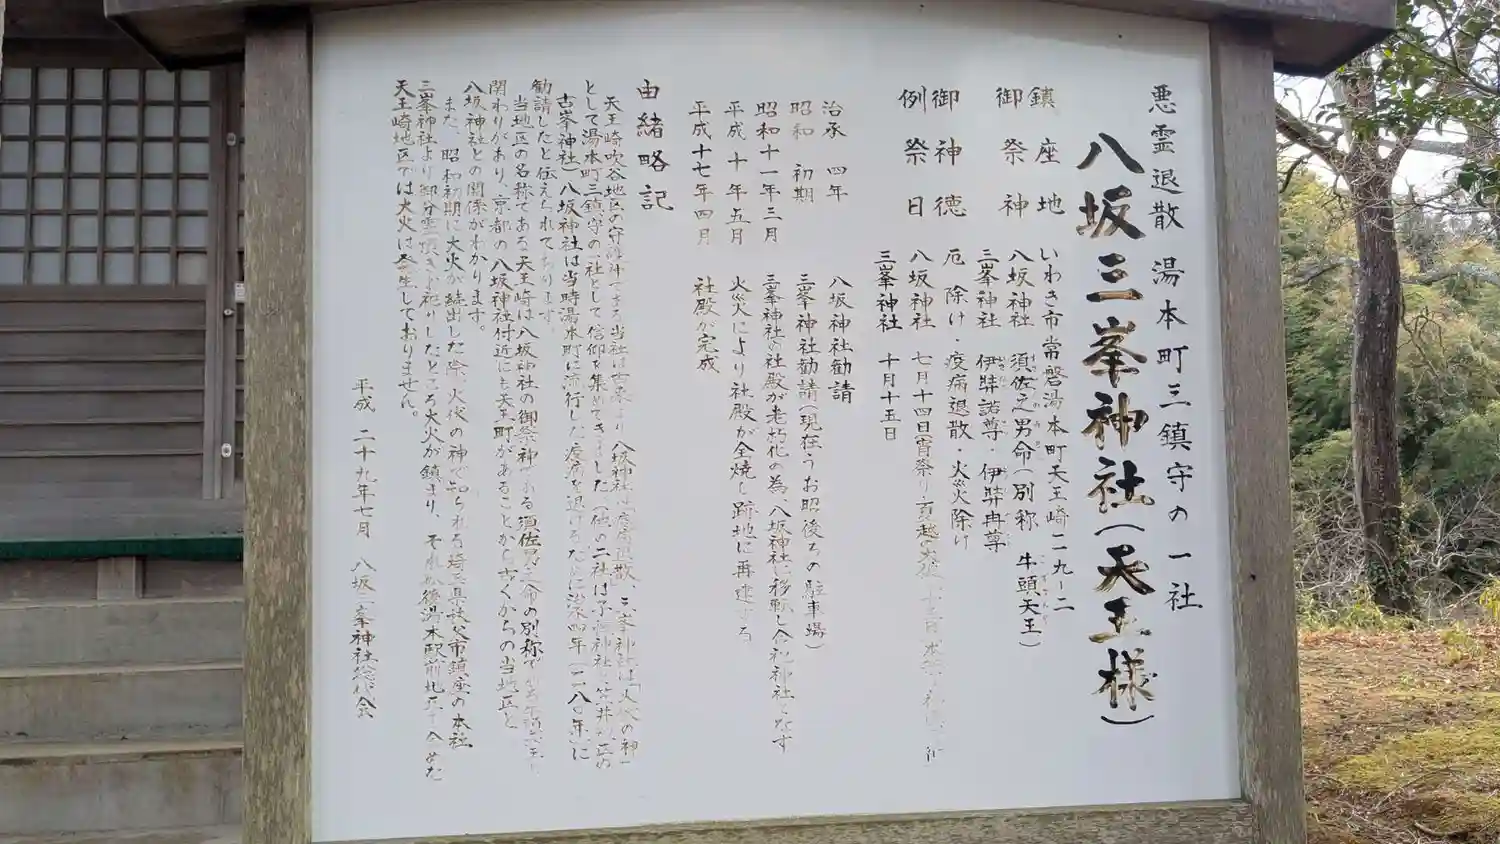 悪霊退散 湯本町三鎮守の一社
八坂三峯神社(天王様)
鎮座地 いわき市常磐湯本町天王崎二九ー二
御祭神 八坂神社 須佐之男命(別称 牛頭天王)
三峯神社 伊弉諾尊・伊弉冉尊
御神徳 厄除け・疫病退散・火災除け
例祭日 八坂神社 七月十四日宵祭り
三峯神社 十月十五日
治承 四年 八坂神社勧請
昭和 初期 三峯神社勧請(現在うお昭後ろの駐車場)
昭和十一年三月 三峯神社の社殿が老朽化の為、八坂神社に移転し合祀神社となす
平成十年五月 火災により社殿が全焼し跡地に再建する
平成十七年四月 社殿が完成
由緒略記
天王崎吹谷地区の守り神である当社は古来より、八坂神社は「疫病退散」三峯神社は「火伏の神」
として湯本町三鎮守の一社として信仰を集めてきました(他の二社は
古峯神社)八坂神社は当時湯本町に流行した疫病を退けるために治承四年(一一八〇年)に
勧請したと伝えられております。
当地区の名称である天王崎は八坂神社の御祭神である須佐之男命の別称で
関わりがあり、京都の八坂神社付近にも天王町があることから古くからの当地区と
八坂神社との関係がわかります。
また、昭和初期に大火が続出した際、火伏の神で知られる埼玉県秩父市鎮座の本社
三峯神社より御分霊頂きお祀りしたところ大火が鎮まり、それ以後湯本駅前北
天王崎地区では大火は発生しておりません。
平成 二十九年七月 八坂三峯神社総代会